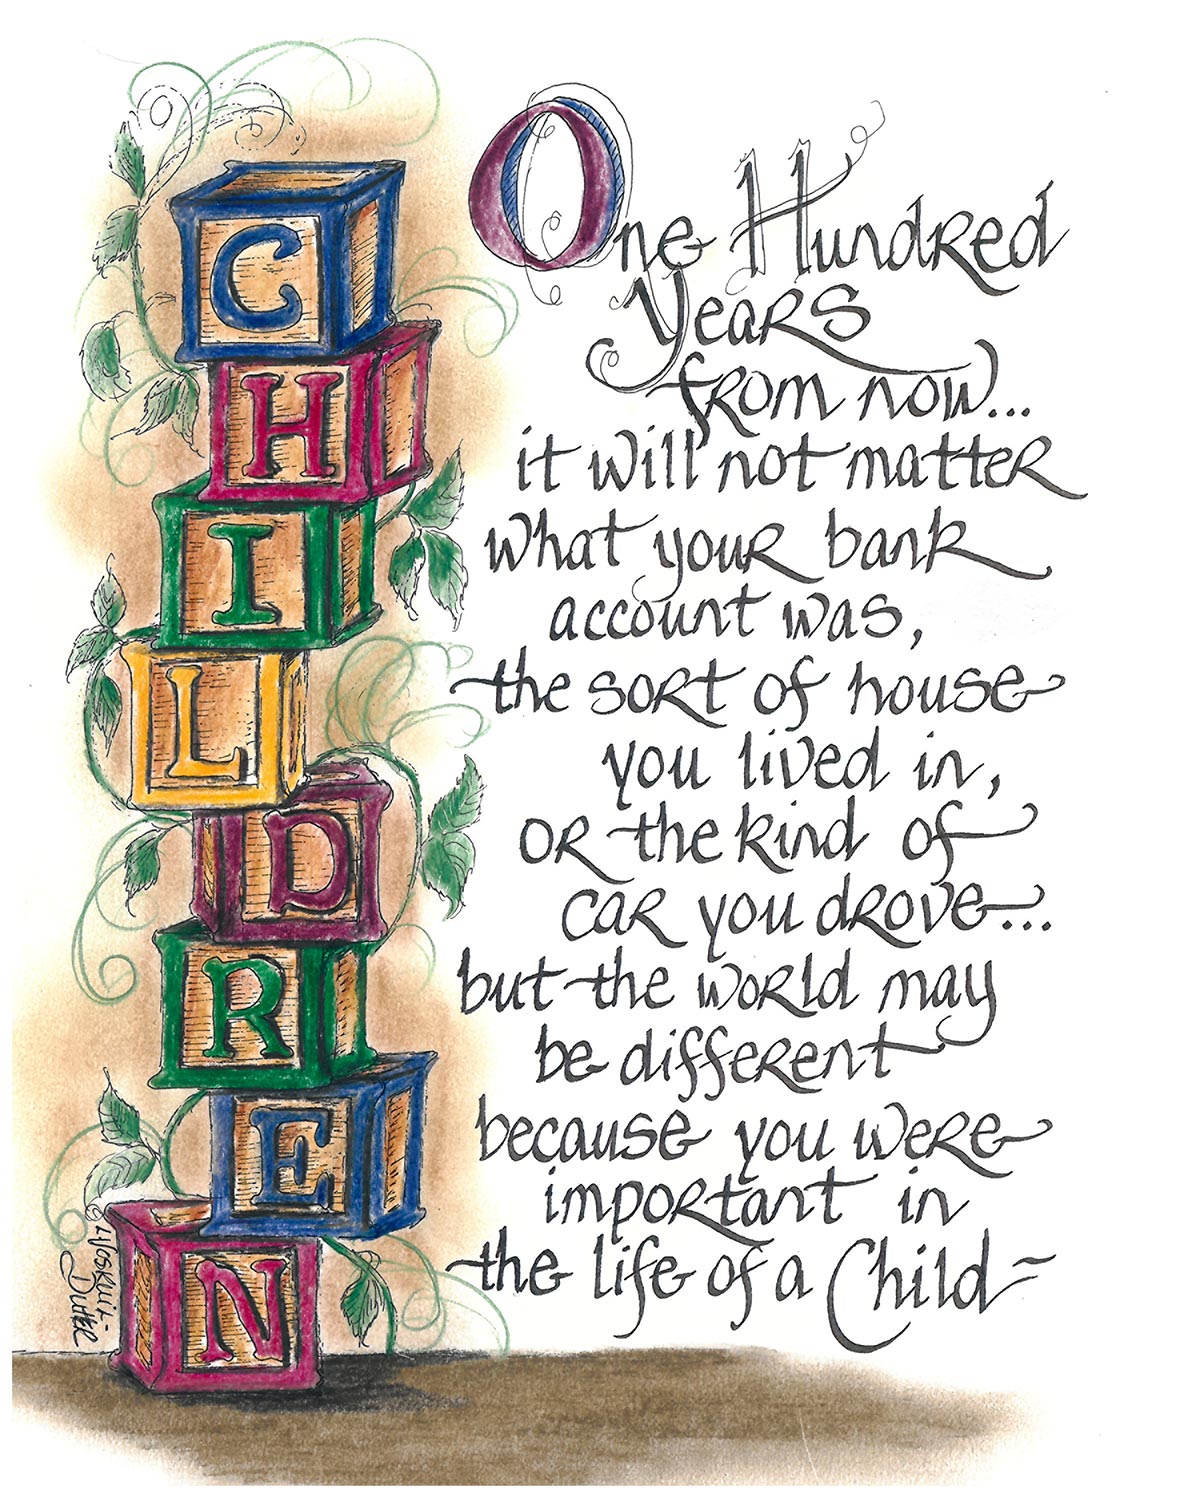 C
H
I
L
D
R
E
N
One Hundred
Years
from now...
it will not matter
what your bank
account was,
the sort of house
you lived in,
or the kind of
car you drove...
but the world may
be different
because you were
important in
the life of a Child~